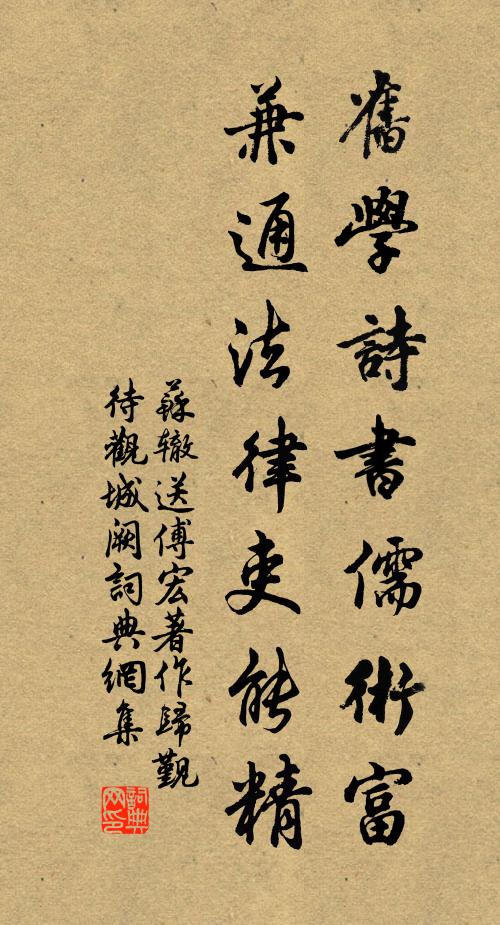 舊學詩書儒術富
兼通法律吏能精
蘇轍送傅宏著作歸觀
待觀城闕詞典網集
詞典
网印